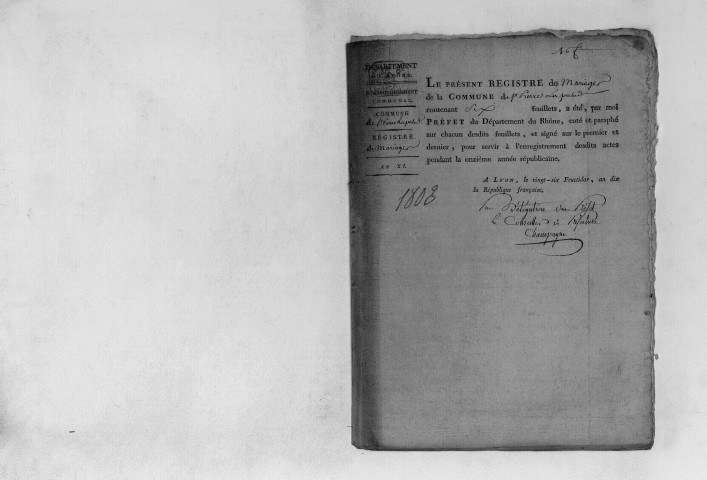 DÉPARTEMENT
DU RHONE.
COMMUNAL.
COMMUNE
de St Pierre la palud
REGISTRE
de Mariages
AN XI.
1803
LE PRÉSENT REGISTRE des Mariages
de la COMMUNE de St Pierre la palud
contenant Six feuillets, a été, par moi
PRÉFET du Département du Rhône, coté et paraphé
sur chacun desdits feuillets, et signé sur le premier et
dernier, pour servir à l'enregistrement desdits actes
pendant la onzième année républicaine.
A LYON, le vingt-six Fructidor, an dix
de la République française.
Par Délégation du Préfet
le Conseiller de Préfecture
Champagne